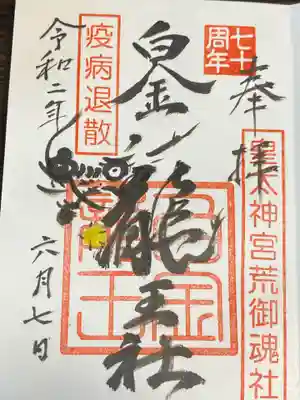 奉拝
七十
周年
皇太神宮荒御魂社
白金龍王社
疫病退散
令和二年
六月七日